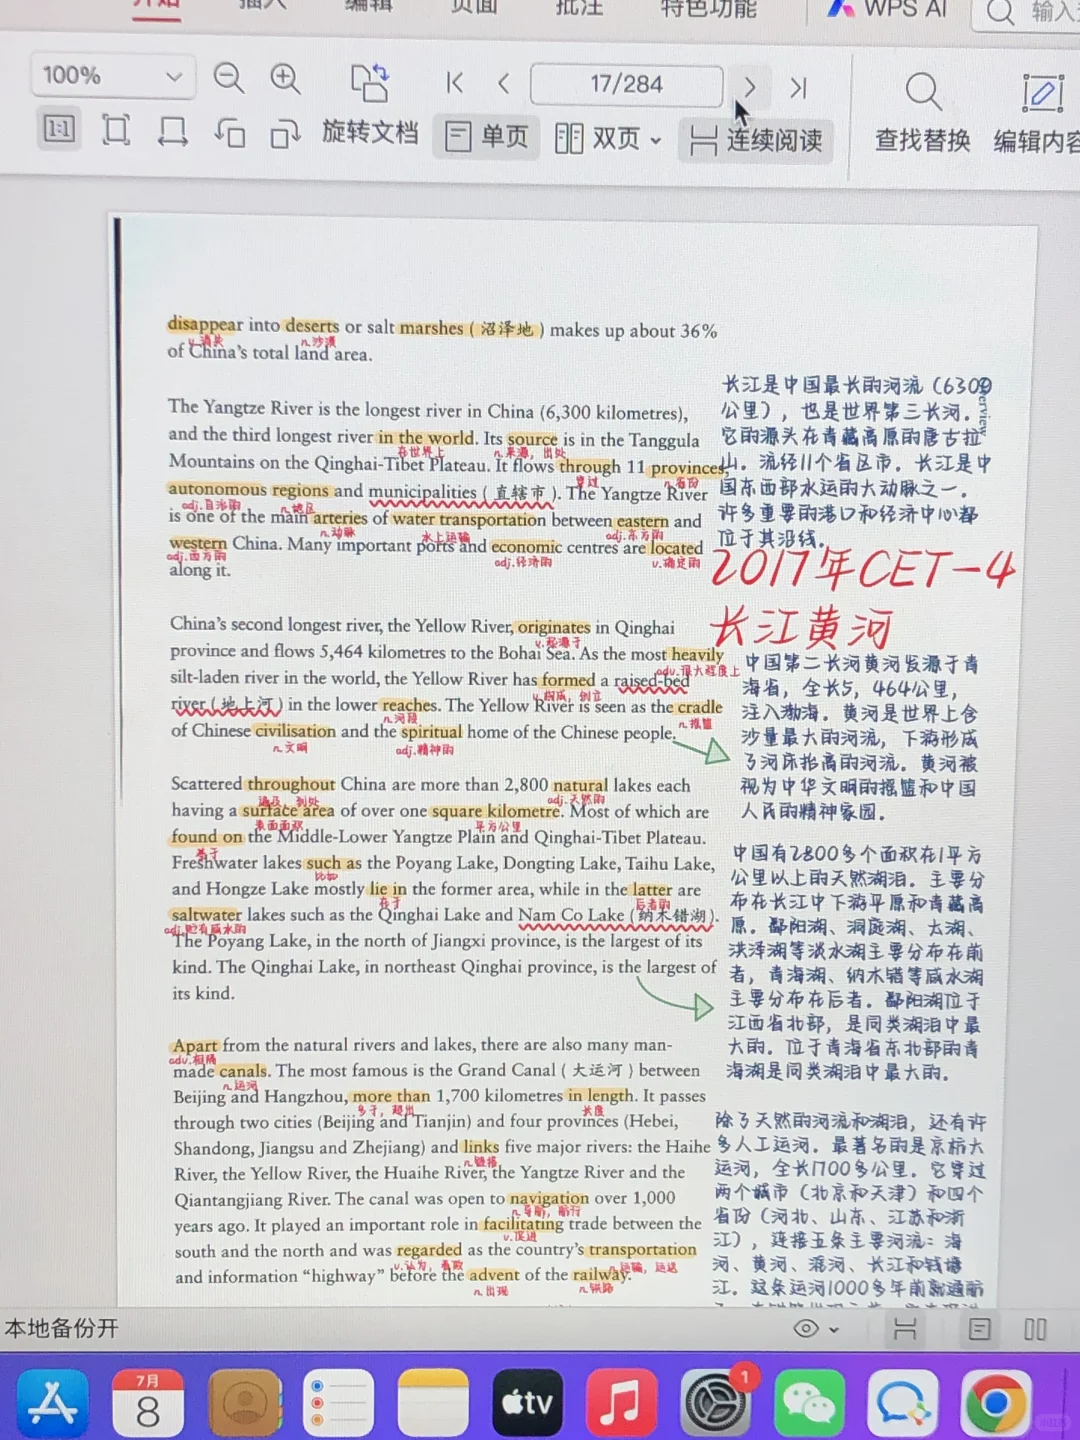 开始 插入 编辑 页面 批注 特色功能 WPS AI
100% 17/284
1:1 旋转文档 单页 双页 连续阅读 查找替换 编辑内容
disappear into deserts or salt marshes ( 沼泽地 ) makes up about 36%
v.消失 n.沙漠
of China's total land area.
The Yangtze River is the longest river in China (6,300 kilometres),
and the third longest river in the world. Its source is in the Tanggula
在世界上 n.来源，出处
Mountains on the Qinghai-Tibet Plateau. It flows through 11 provinces,
穿过 n.省份
autonomous regions and municipalities ( 直辖市 ). The Yangtze River
adj.自治的 n.地区
is one of the main arteries of water transportation between eastern and
n.动脉 水上运输 adj.东方的
western China. Many important ports and economic centres are located
adj.西方的 adj.经济的 v.确定的
along it.
长江是中国最长的河流（6300
公里），也是世界第三长河。
它的源头在青藏高原的唐古拉
山。流经11个省区市。长江是中
国东西部水运的大动脉之一。
许多重要的港口和经济中心都
位于其沿线。
2017年CET-4
长江黄河
China's second longest river, the Yellow River, originates in Qinghai
v.起源于
province and flows 5,464 kilometres to the Bohai Sea. As the most heavily
adv.很大程度上
silt-laden river in the world, the Yellow River has formed a raised-bed
v.构成，创立
river ( 地上河 ) in the lower reaches. The Yellow River is seen as the cradle
n.河段 n.摇篮
of Chinese civilisation and the spiritual home of the Chinese people.
n.文明 adj.精神的
中国第二长河黄河发源于青
海省，全长5，464公里，
注入渤海。黄河是世界上含
沙量最大的河流，下游形成
了河床抬高的河流。黄河被
视为中华文明的摇篮和中国
人民的精神家园。
Scattered throughout China are more than 2,800 natural lakes each
遍及，到处 adj.天然的
having a surface area of over one square kilometre. Most of which are
表面面积 平方公里
found on the Middle-Lower Yangtze Plain and Qinghai-Tibet Plateau.
基于
Freshwater lakes such as the Poyang Lake, Dongting Lake, Taihu Lake,
比如
and Hongze Lake mostly lie in the former area, while in the latter are
在于 后者的
saltwater lakes such as the Qinghai Lake and Nam Co Lake ( 纳木错湖 ).
adj.贮有咸水的
The Poyang Lake, in the north of Jiangxi province, is the largest of its
kind. The Qinghai Lake, in northeast Qinghai province, is the largest of
its kind.
中国有2800多个面积在1平方
公里以上的天然湖泊。主要分
布在长江中下游平原和青藏高
原。鄱阳湖、洞庭湖、太湖、
洪泽湖等淡水湖主要分布在前
者，青海湖、纳木错等咸水湖
主要分布在后者。鄱阳湖位于
江西省北部，是同类湖泊中最
大的。位于青海省东北部的青
海湖是同类湖泊中最大的。
Apart from the natural rivers and lakes, there are also many man-
adv.相隔
made canals. The most famous is the Grand Canal ( 大运河 ) between
n.运河
Beijing and Hangzhou, more than 1,700 kilometres in length. It passes
多于，超出 长度
through two cities (Beijing and Tianjin) and four provinces (Hebei,
Shandong, Jiangsu and Zhejiang) and links five major rivers: the Haihe
n.链接
River, the Yellow River, the Huaihe River, the Yangtze River and the
Qiantangjiang River. The canal was open to navigation over 1,000
n.导航，航行
years ago. It played an important role in facilitating trade between the
v.促进
south and the north and was regarded as the country's transportation
v.认为，看致 n.运输，运送
and information “highway” before the advent of the railway.
n.出现 n.铁路
除了天然的河流和湖泊，还有许
多人工运河。最著名的是京杭大
运河，全长1700多公里。它穿过
两个城市（北京和天津）和四个
省份（河北、山东、江苏和浙
江），连接五条主要河流：海
河、黄河、淮河、长江和钱塘
江。这条运河1000多年前就通航
本地备份开
7月
8
tv
1